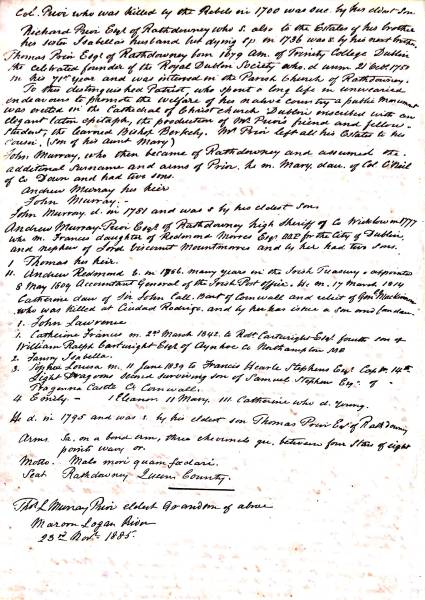 Col. Prior who was killed by the Rebels in 1700 was suc. by his eldest son
Richard Prior Esqr of Rathdowney who s. also to the Estates of his brother
his sister Isabella's husband but dying s.p. in 1736 was s. by his next brother
Thomas Prior Esqr of Rathdowney born 1679 A.M. of Trinity College Dublin
the celebrated founder of the Royal Dublin Society who d. unm 21 Oct 1751
in his 71st year and was interred in the Parish Church of Rathdowney.
To this distinguished Patriot, who spent a long life in unwearied
endeavours to promote the welfare of his native country a public monument
was erected in the Cathedral of Christ church Dublin inscribed with an
elegant latin epitaph, the production of Mr Prior's friend and fellow-
student, the learned Bishop Berkely. Mr Prior left all his Estates to his
cousin, (son of his aunt Mary)
John Murray, who then became of Rathdowney and assumed the
additional Surname and arms of Prior, he m. Mary, daur. of Col O'Neil
of Co Down and had two sons.
Andrew Murray his heir
John Murray.
John Murray d. in 1781 and was s by his eldest son.
Andrew Murray Prior Esqr of Rathdowney high Sheriff of Co Wicklow in 1777
who m. Frances daughter of Redmond Morres Esqr M.P. for the City of Dublin,
and nephew of Lord Viscount Mountmorres and by her had two sons.
1 Thomas his heir.
11. Andrew Redmond b. in 1766. many years in the Irish Treasury & appointed
8 May 1809 Accountant General of the Irish Post office. He m. 17 March 1814
Catherine daur of Sir John Call. Bart of Cornwall and relict of Genl Mackinnon
who was killed at Ciudad Rodrigo, and by her has issue a son and four daurs
1. John Lawrence
1. Catherine Frances m. 22d March 1842. to Robt Cartwright Esqr fourth son of
William Ralph Cartwright Esqr of Aynhoe Co Northampton MP
2. Fanny Isabella.
3. Sophia Louisa m. 11 June 1839 to Francis Hearle Stephens Esqr Capt in 14th
Light Dragoons second surviving son of Samuel Stephens Esqr. of
Tregenna Castle Co Cornwall.
4 Emily - 1 Eleanor 11 Mary, 111 Catherine who d. young.
He d. in 1795 and was s. by his eldest son Thomas Prior Esqr of Rathdowney
Arms. Sa, on a bend arm, three chevronels gu. between four Stars of eight
points wavy or.
Motto. Malo mori quam foedari.
Seat Rathdowney Queens County.
Thos L Murray Prior eldest Grandson of above
Maroon Logan River
23rd Novr 1885.